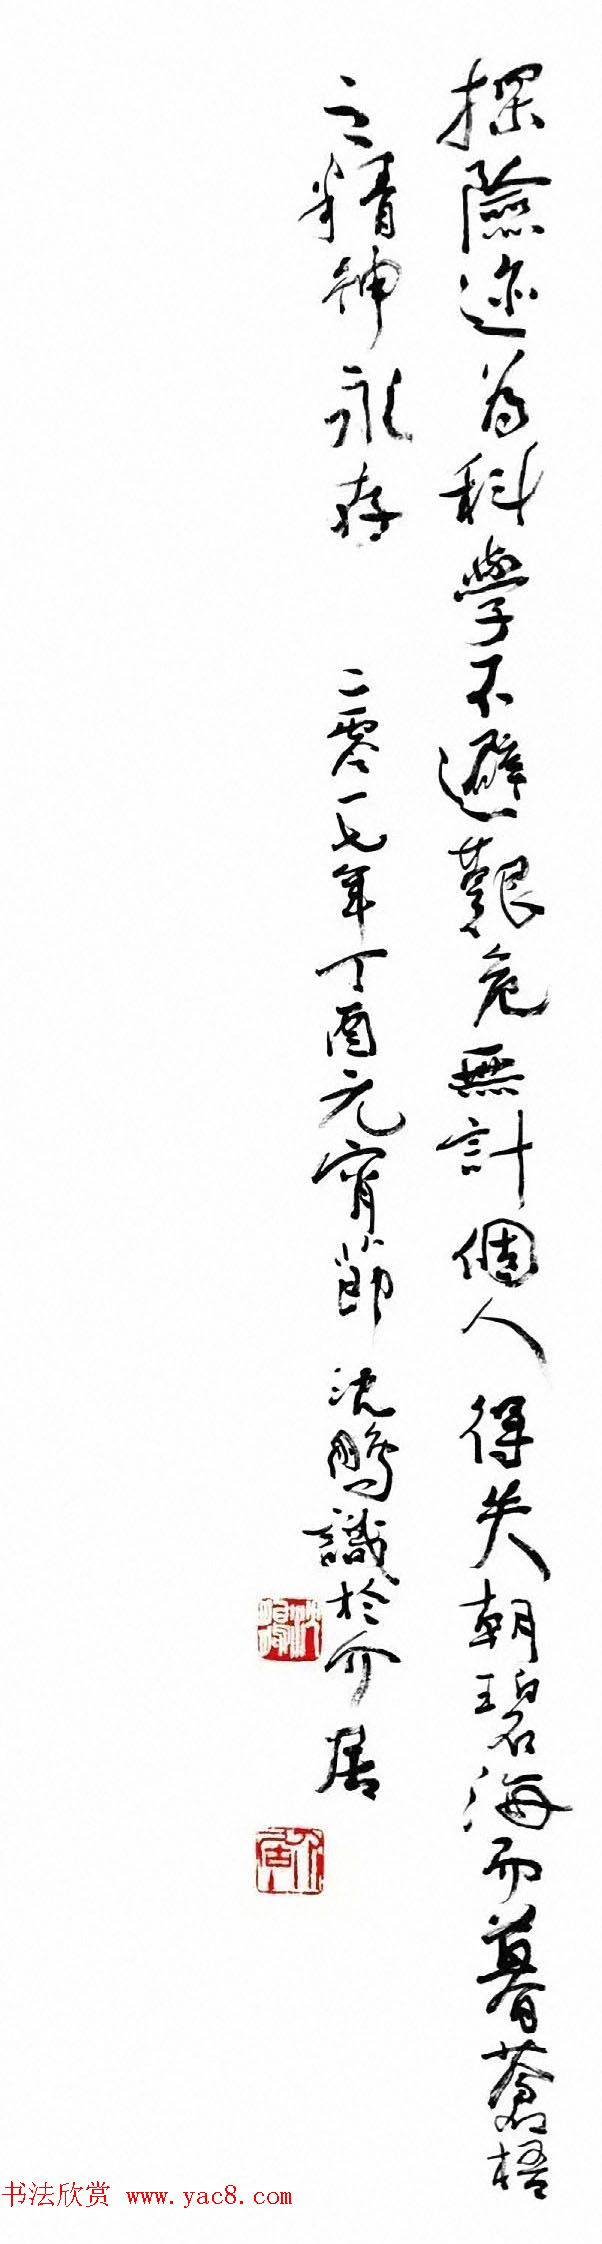 探險迹为科學不避艱危無計個人得失朝碧海而暮蒼梧
之精神永存
二零一七年丁酉元宵節沈鵬識於介居
沈鵬
介居
书法欣赏 www.yac8.com